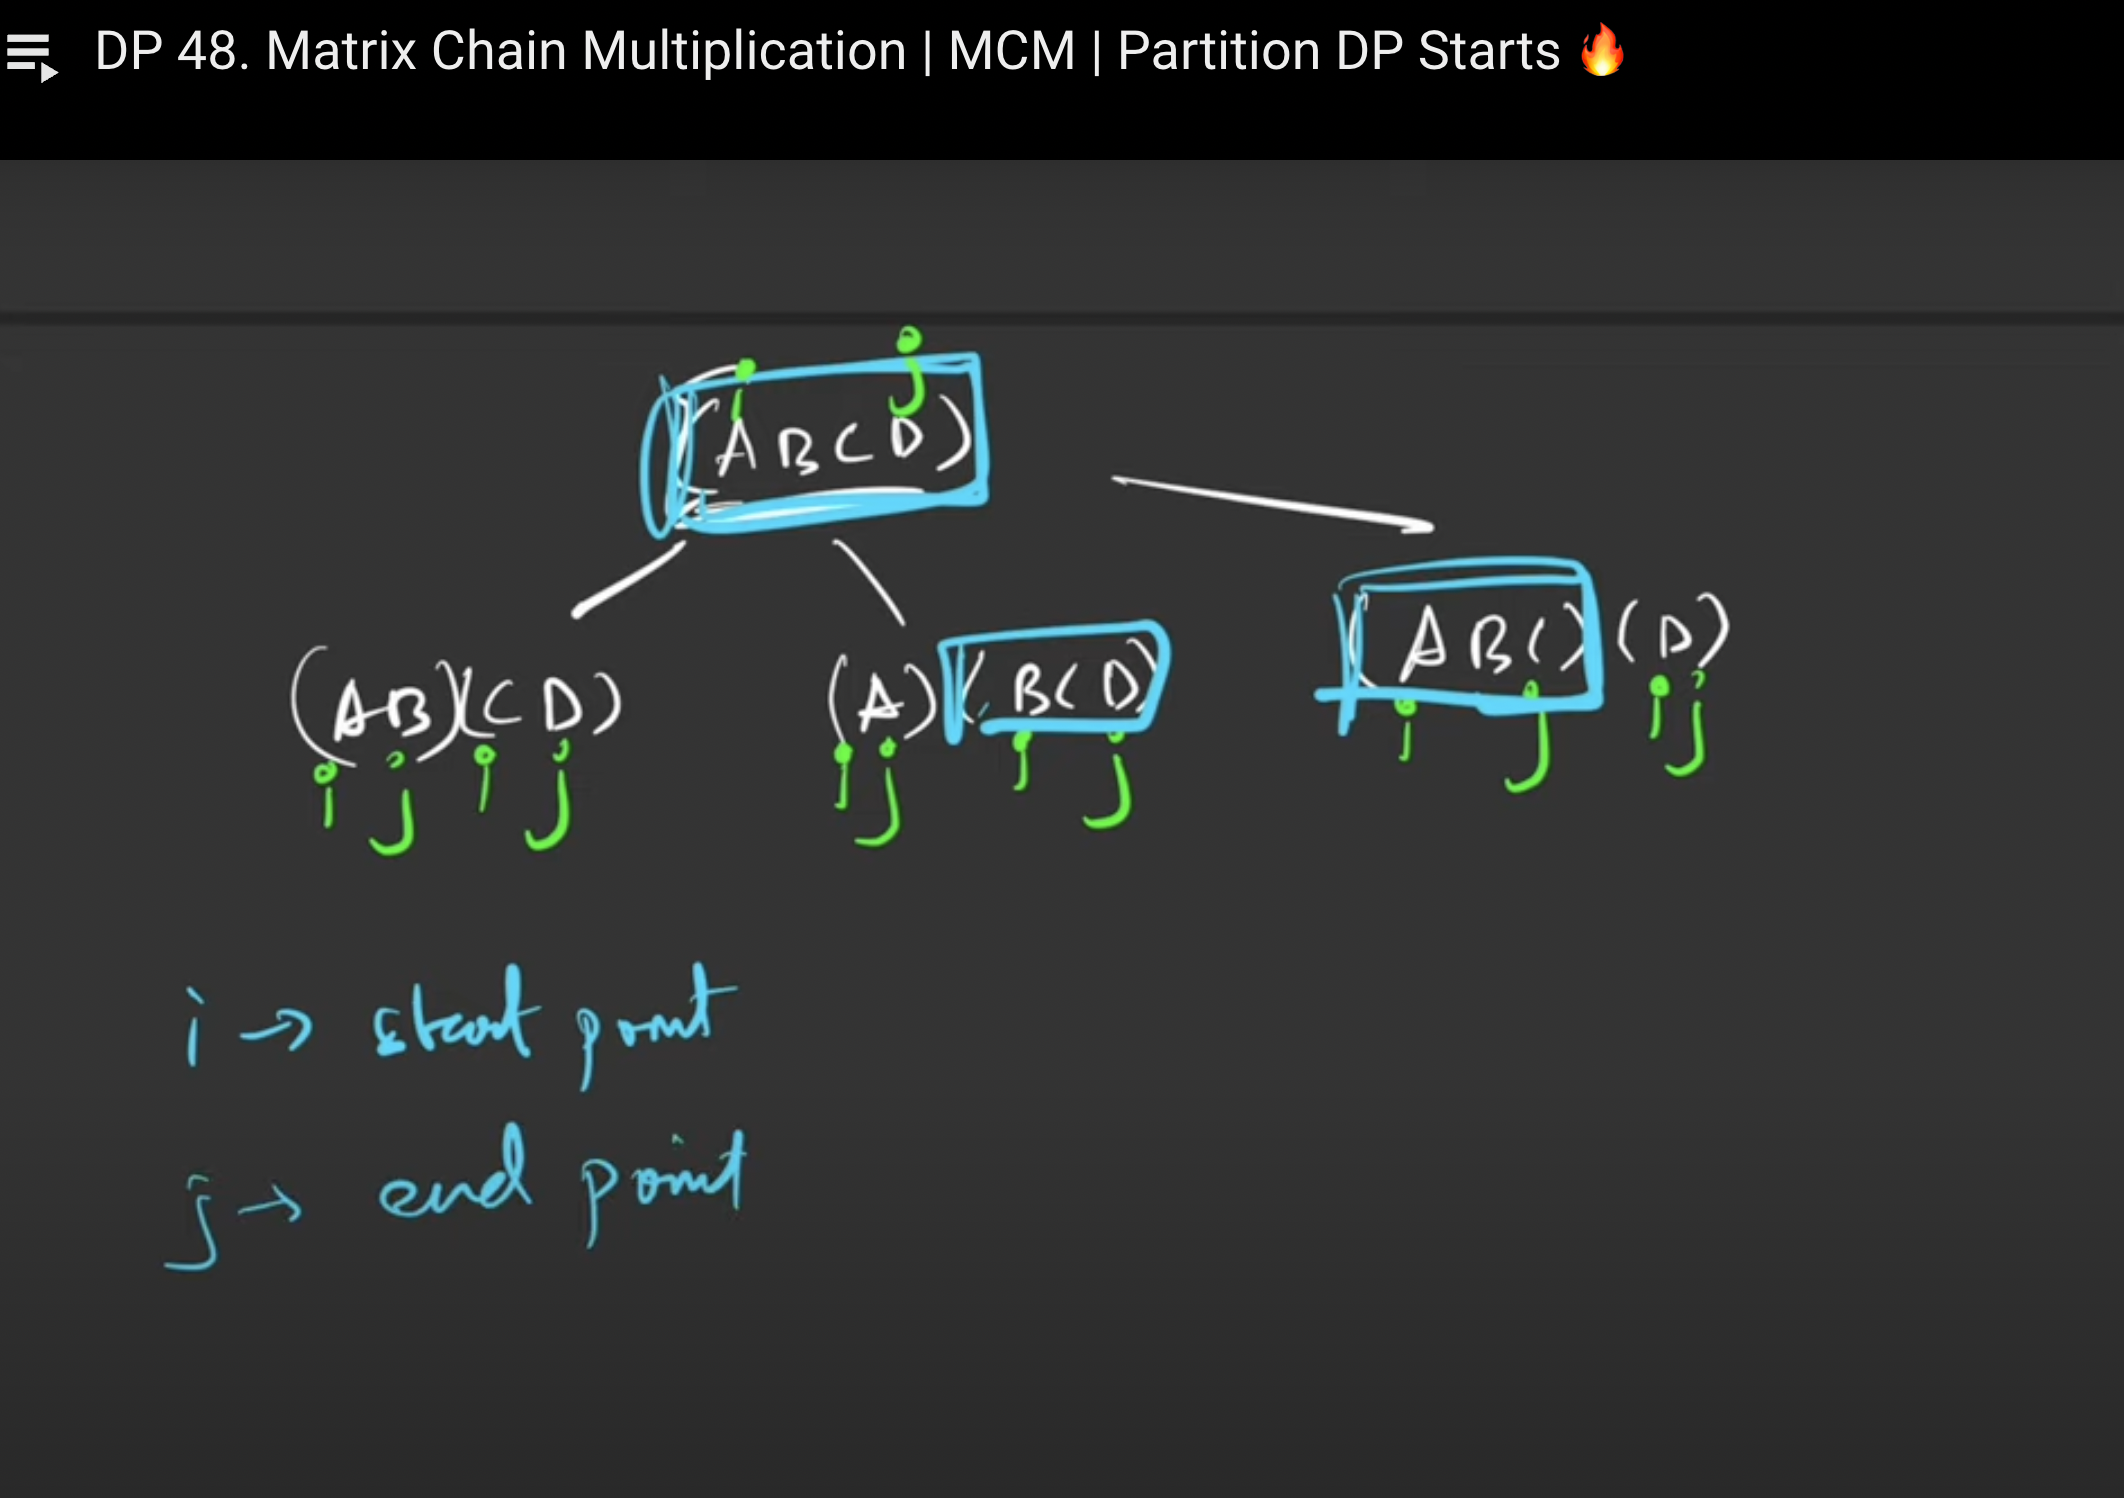 DP 48. Matrix Chain Multiplication | MCM | Partition DP Starts 🔥
i j
(ABCD)
(AB)(CD) (A)(BCD) (ABC)(D)
i j i j i j i j i j i j
i → start point
j → end point